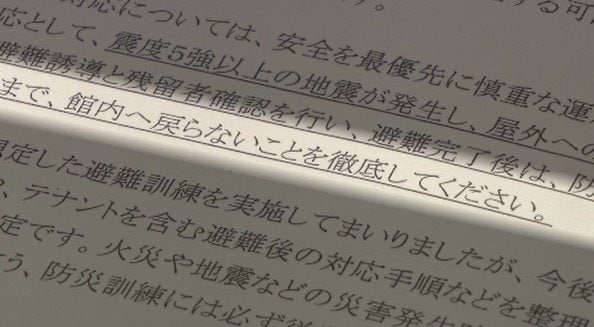 対応については、安全を最優先に慎重な運
応として、震度5強以上の地震が発生し、屋外への
避難誘導と残留者確認を行い、避難完了後は、防
まで、館内へ戻らないことを徹底してください。
想定した避難訓練を実施してまいりましたが、今後
、テナントを含む避難後の対応手順などを整理
定です。火災や地震などの災害発生
う、防災訓練には必ず